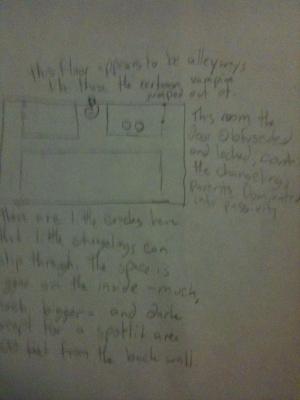 this floor appears to be alleyways
like those the cartoon vampire
jumped out of.
This room the
door Obfuscated
and locked,
the changelings
parents, Dominated
into passivity
There are little cracks here
that little changelings can
slip through. The space is
on the inside - much,
much, bigger - and dark
except for a spotlit area
feet from the back wall